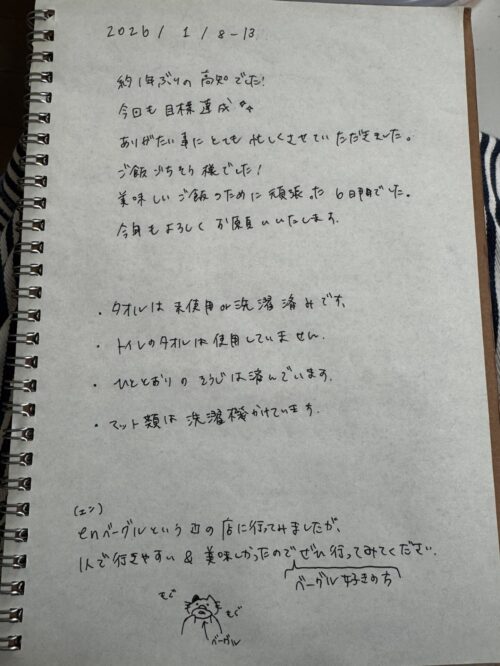 2026/1/8-13
約1年ぶりの高知でした!
今回も目標達成
ありがたい事にとても忙しくさせていただきました。
ご飯ごちそう様でした!
美味しいご飯のために頑張った6日間でした。
今年もよろしくお願いいたします。
・タオルは未使用or洗濯済みです。
・トイレのタオルは使用していません。
・ひととおりのそうじは済んでいます。
・マット類は洗濯機かけています。
(エン)
enベーグルという辺の店に行ってみましたが、
1人で行きやすい&美味しかったのでぜひ行ってみてください。
ベーグル好きの方
もぐ もぐ
ベーグル